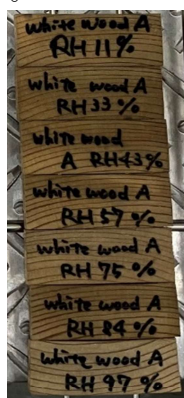 white wood A
RH 11%
white wood A
RH 33%
white wood
A RH43%
white wood A
RH 57%
white wood A
RH 75%
white wood A
RH 84%
white wood A
RH 97%